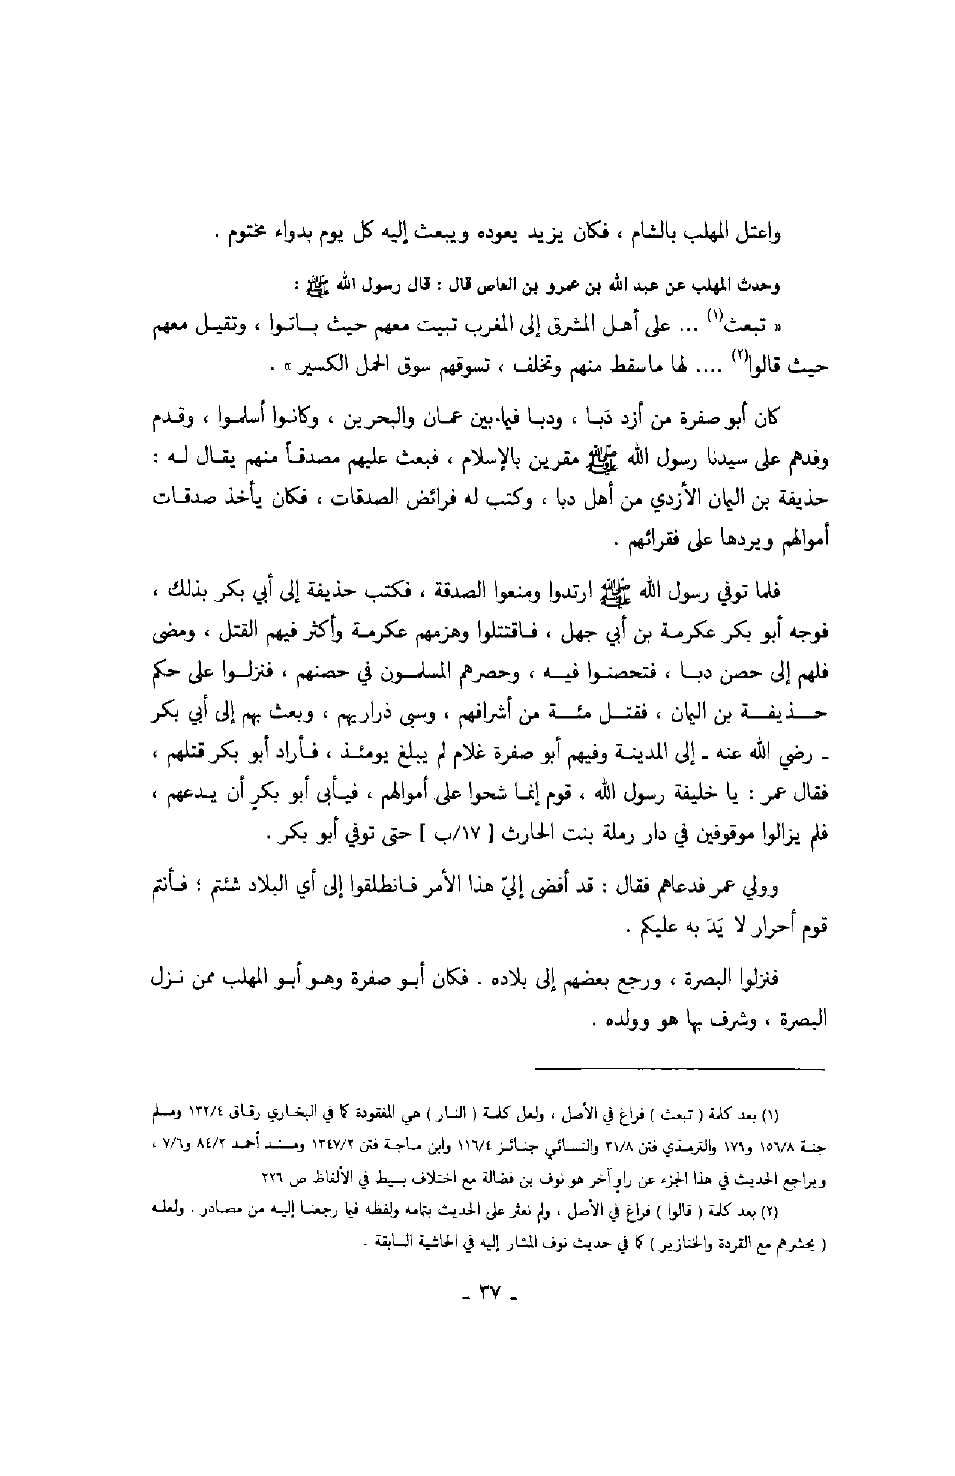 واعتل المهلب بالشام ، فكان يزيد يعوده ويبعث إليه كل يوم بدواء مختوم .
وحدث المهلب عن عبد الله بن عمرو بن العاص قال : قال رسول الله ﷺ :
« تبعث(١) ... على أهل المشرق إلى المغرب تبيت معهم حيث باتوا ، وتقيل معهم
حيث قالوا(٢) .... لها ماسقط منهم وتخلف ، تسوقهم سوق الجمل الكسير » .
كان أبو صفرة من أزد دَبا ، ودبا فيما بين عمان والبحرين ، وكانوا أسلموا ، وقدم
وفدهم على سيدنا رسول الله ﷺ مقرين بالإسلام ، فبعث عليهم مصدقاً منهم يقال له :
حذيفة بن اليمان الأزدي من أهل دبا ، وكتب له فرائض الصدقات ، فكان يأخذ صدقات
أموالهم ويردها على فقرائهم .
فلما توفي رسول الله ﷺ ارتدوا ومنعوا الصدقة ، فكتب حذيفة إلى أبي بكر بذلك ،
فوجه أبو بكر عكرمة بن أبي جهل ، فاقتتلوا وهزمهم عكرمة وأكثر فيهم القتل ، ومضى
فلهم إلى حصن دبا ، فتحصنوا فيه ، وحصرهم المسلمون في حصنهم ، فنزلوا على حكم
حذيفة بن اليمان ، فقتل مئة من أشرافهم ، وسبى ذراريهم ، وبعث بهم إلى أبي بكر
ـ رضي الله عنه ـ إلى المدينة وفيهم أبو صفرة غلام لم يبلغ يومئذ ، فأراد أبو بكر قتلهم ،
فقال عمر : يا خليفة رسول الله ، قوم إنما شحوا على أموالهم ، فيأبى أبو بكرٍ أن يدعهم ،
فلم يزالوا موقوفين في دار رملة بنت الحارث [ ١٧/ب ] حتى توفي أبو بكر .
وولي عمر فدعاهم فقال : قد أفضى إليّ هذا الأمر فانطلقوا إلى أي البلاد شئتم ؛ فأنتم
قوم أحرار لا يَدَ به عليكم .
فنزلوا البصرة ، ورجع بعضهم إلى بلاده . فكان أبو صفرة وهو أبو المهلب ممن نزل
البصرة ، وشرف بها هو وولده .
(١) بعد كلمة ( تبعث ) فراغ في الأصل ، ولعل كلمة ( النار ) هي المفقودة كما في البخاري رقاق ١٣٢/٤ ومسلم
جنة ١٥٦/٨ و١٧٩ والترمذي فتن ٣١/٨ والنسائي جنائز ١١٦/٤ وابن ماجة فتن ١٣٤٧/٢ ومسند أحمد ٨٤/٢ و٧/٦ ،
ويراجع الحديث في هذا الجزء عن راوٍ آخر هو نوف بن فضالة مع اختلاف بسيط في الألفاظ ص ٢٢٦
(٢) بعد كلمة ( قالوا ) فراغ في الأصل ، ولم نعثر على الحديث بتمامه ولفظه فيما رجعنا إليه من مصادر . ولعله
( يحشرهم مع القردة والخنازير ) كما في حديث نوف المشار إليه في الحاشية السابقة .
ـ ٣٧ ـ